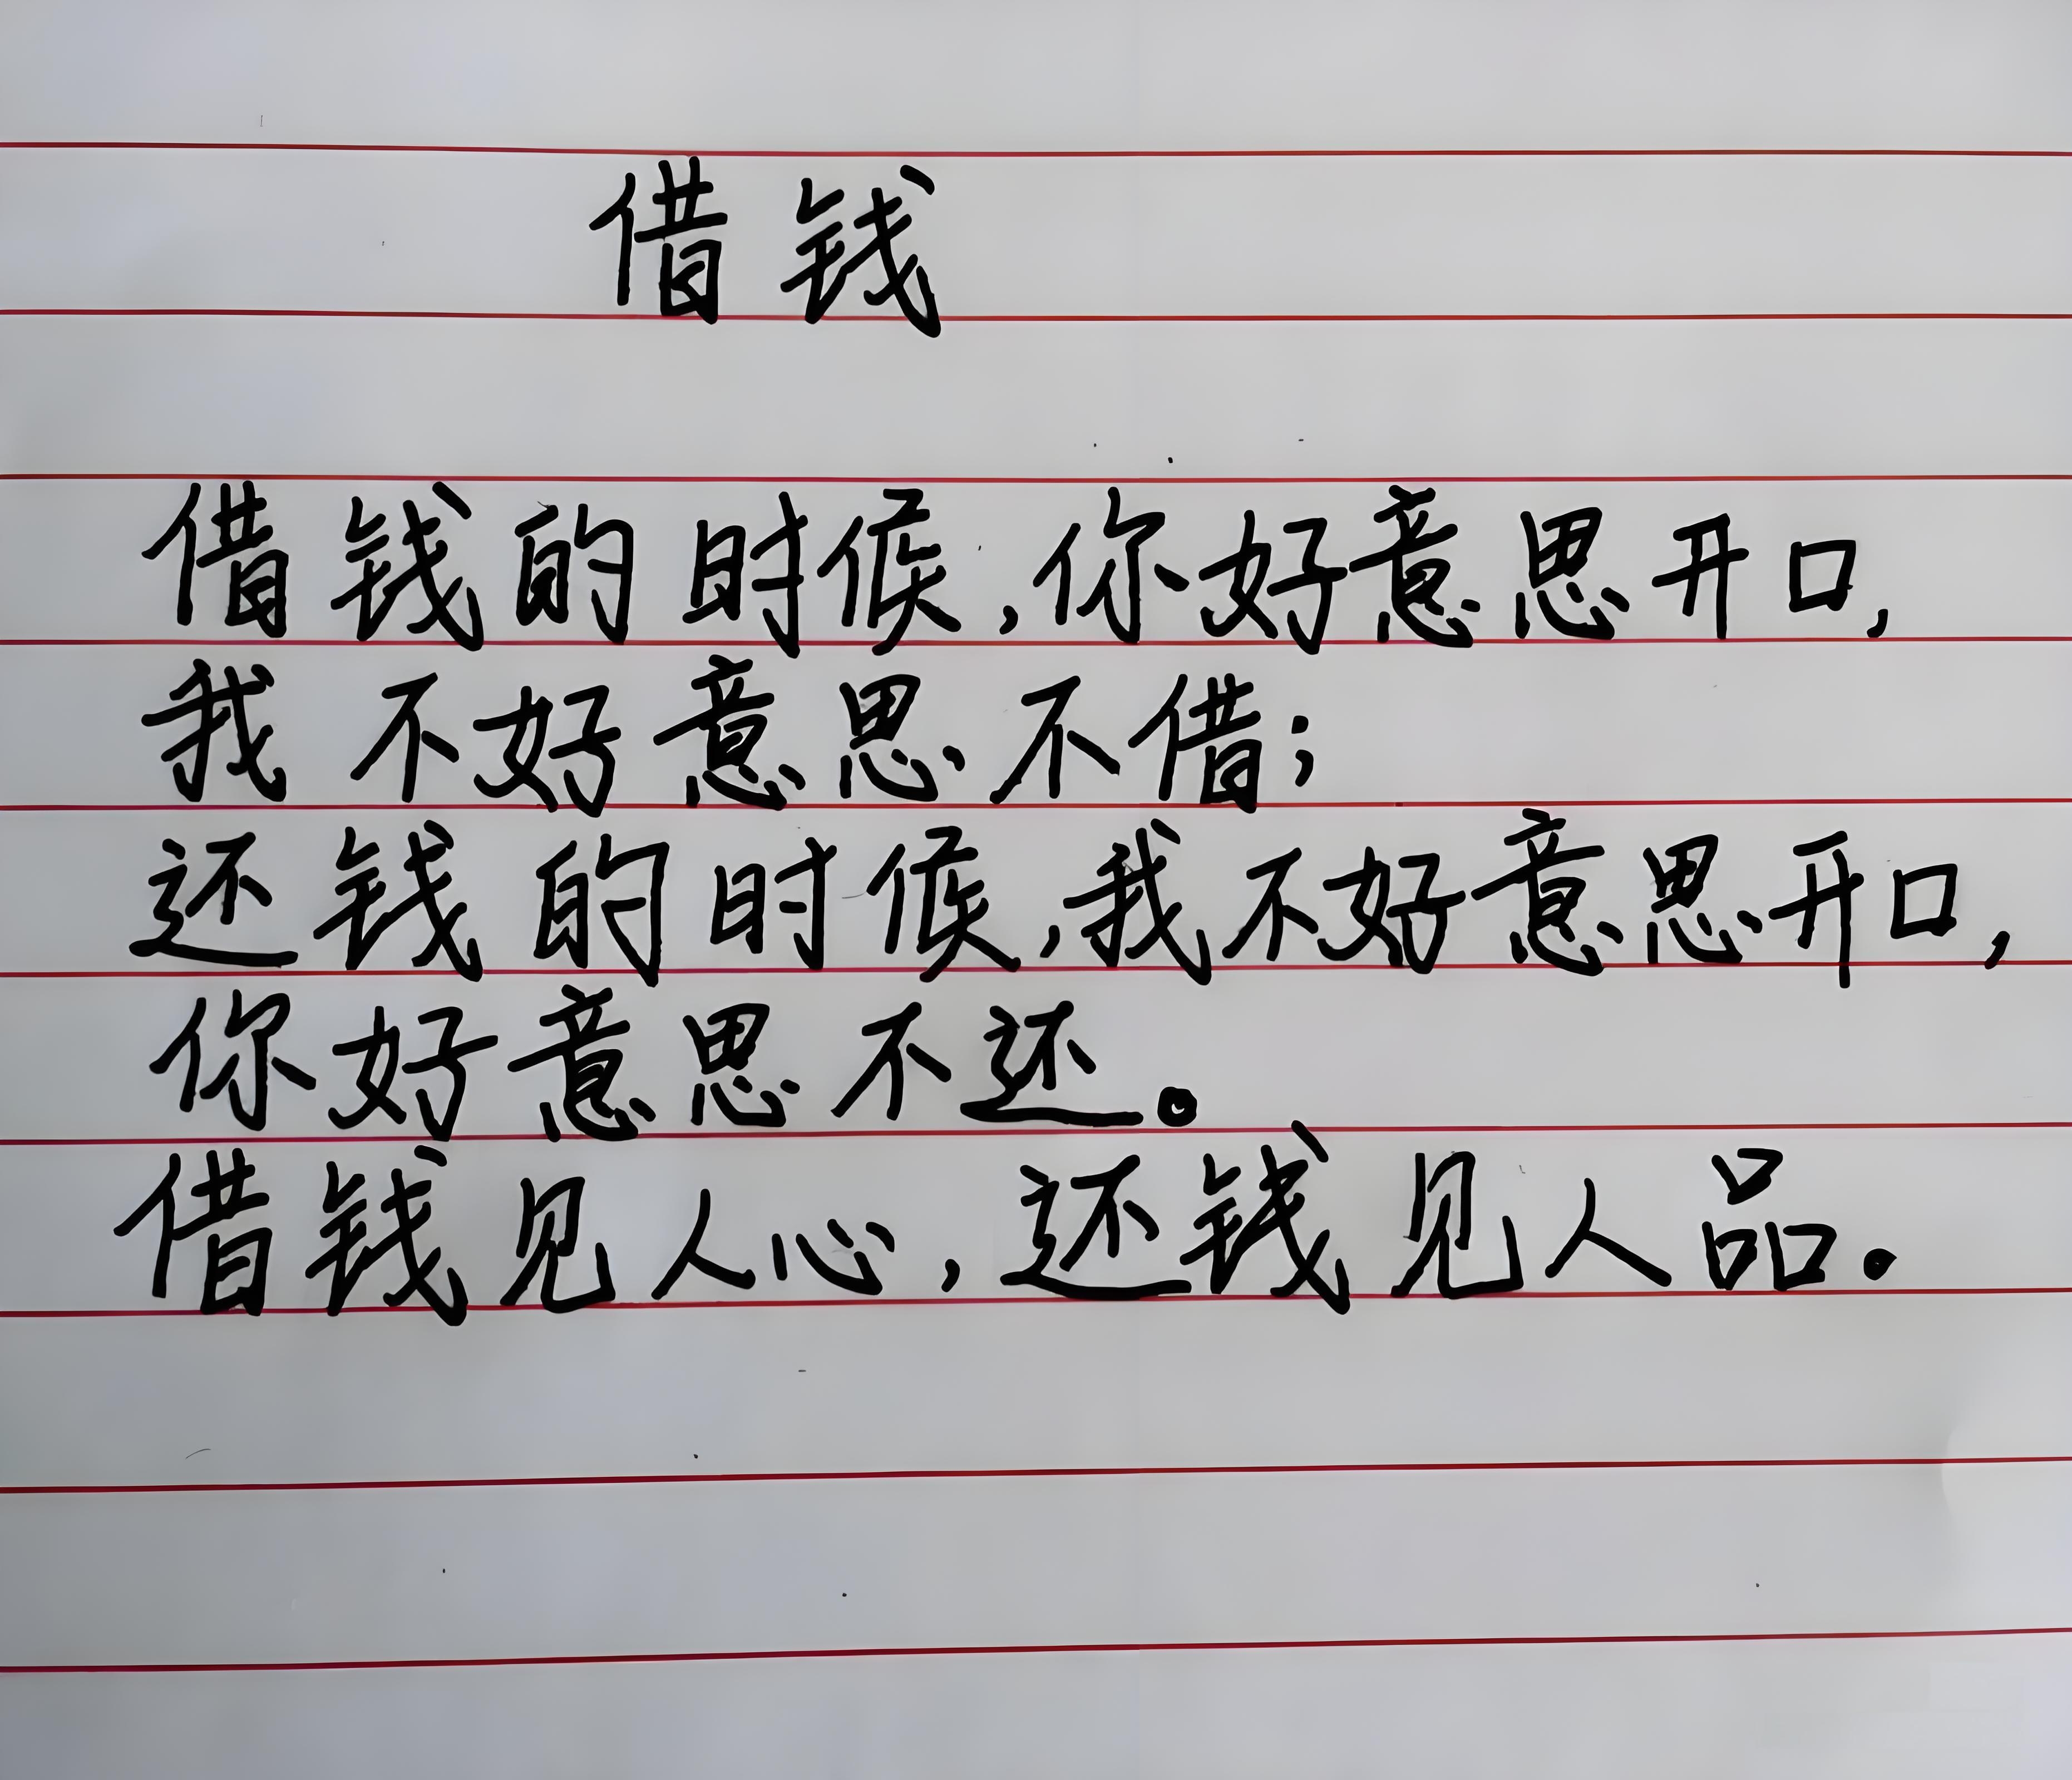 借钱
借钱的时候,你好意思开口,
我不好意思不借;
还钱的时候,我不好意思开口,
你好意思不还。
借钱见人心,还钱见人品。